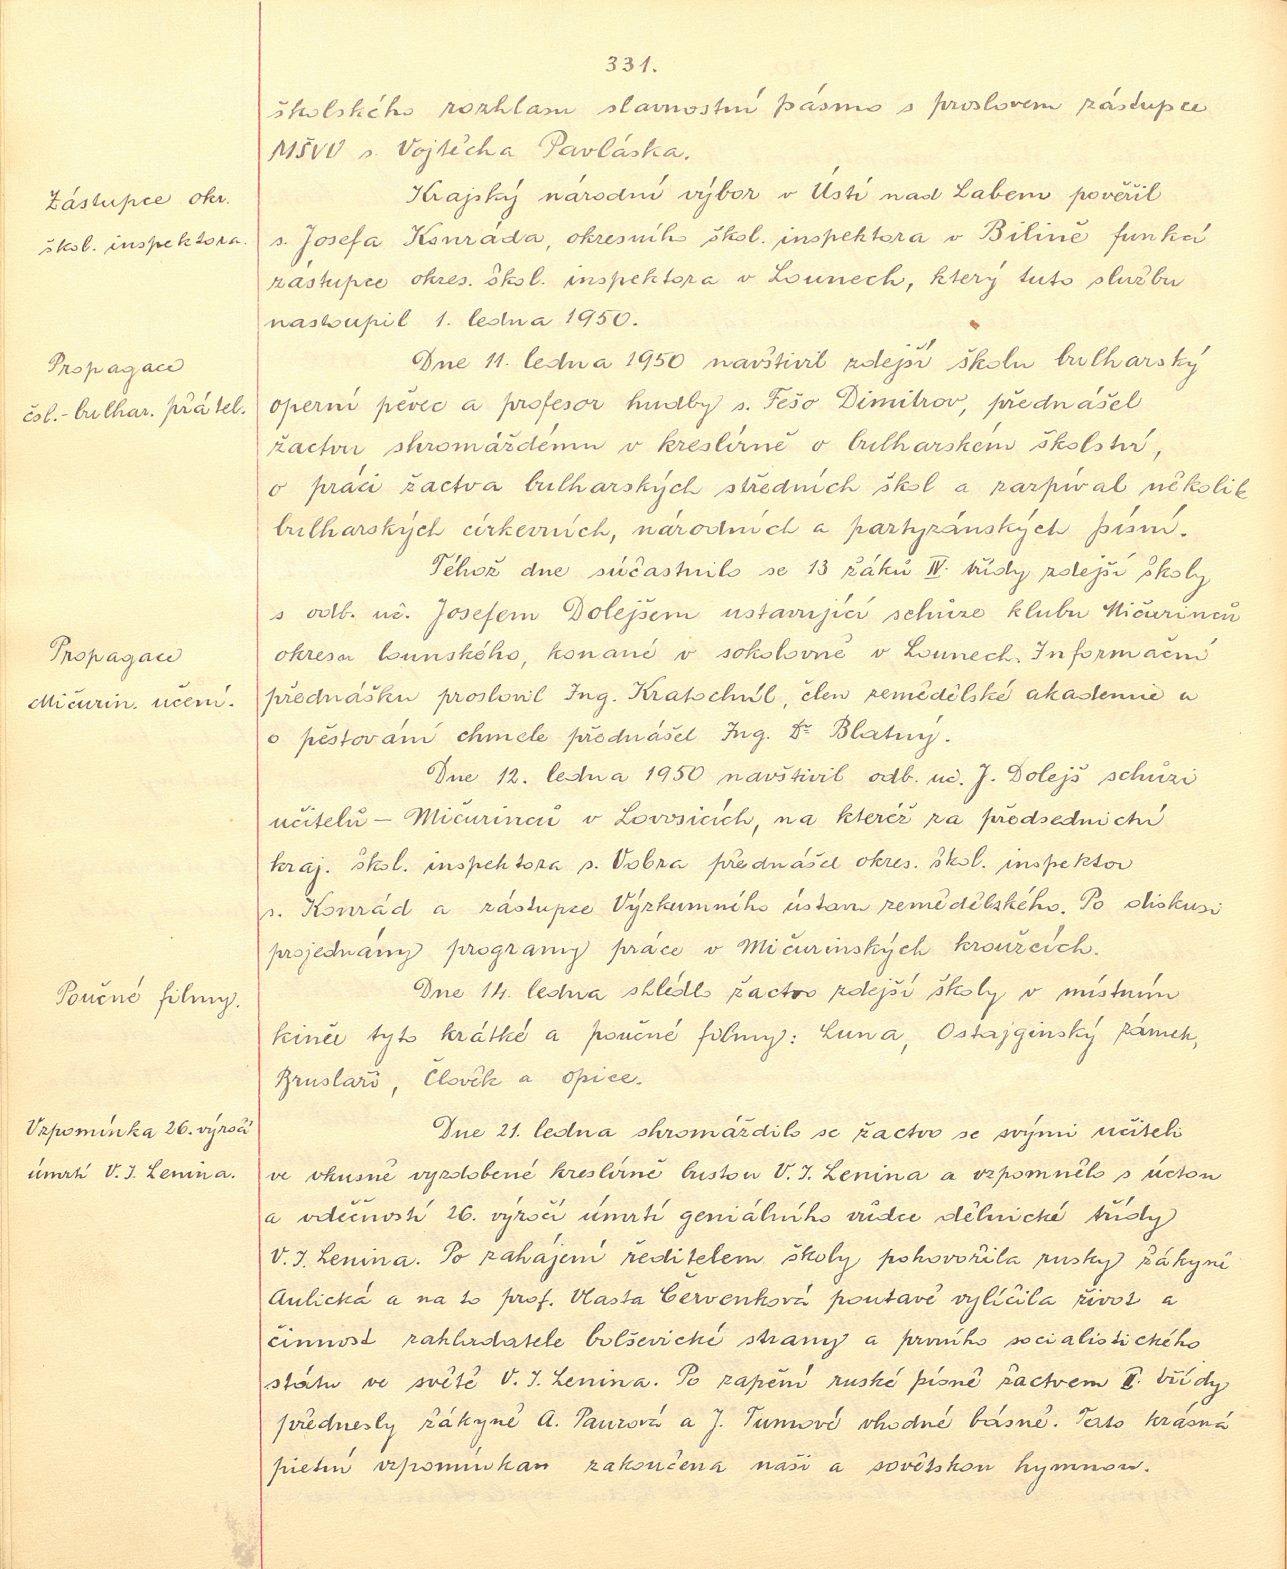 331.
školského rozhlasu slavnostní pásmo s proslovem zástupce
MŠVU s. Vojtěcha Pavláska.
Zástupce okr.
škol. inspektora.
Krajský národní výbor v Ústí nad Labem pověřil
s. Josefa Konráda, okresního škol. inspektora v Bilině funkcí
zástupce okres. škol. inspektora v Lounech, který tuto službu
nastoupil 1. ledna 1950.
Propagace
čsl.-bulhar. přátel.
Dne 11. ledna 1950 navštívil zdejší školu bulharský
operní pěvec a profesor hudby s. Fešo Dimitrov, přednášel
žactvu shromážděnu v kreslírně o bulharském školství,
o práci žactva bulharských středních škol a zazpíval několik
bulharských církevních, národních a partyzánských písní.
Téhož dne súčastnilo se 13 žáků IV. třídy zdejší školy
s odb. uč. Josefem Dolejšem ustavující schůze klubu Mičurinců
okresu lounského, konané v sokolovně v Lounech. Informační
Propagace
Mičurin. učení.
přednášku proslovil Ing. Kratochvíl, člen zemědělské akademie a
o pěstování chmele přednášel Ing. Dr Blatný.
Dne 12. ledna 1950 navštívil odb. uč. J. Dolejš schůzi
učitelů – Mičurinců v Lovosicích, na kteréž za předsednictví
kraj. škol. inspektora s. Vobra přednášel okres. škol. inspektor
s. Konrád a zástupce Výzkumného ústavu zemědělského. Po diskusi
projednány programy práce v Mičurinských kroužcích.
Poučné filmy.
Dne 14. ledna shlédlo žactvo zdejší školy v místním
kině tyto krátké a poučné filmy: Luna, Ostajginský zámek,
Bruslaři, Člověk a opice.
Vzpomínka 26. výročí
úmrtí V. I. Lenina.
Dne 21. ledna shromáždilo se žactvo se svými učiteli
ve vkusně vyzdobené kreslírně bustou V. I. Lenina a vzpomnělo s úctou
a vděčností 26. výročí úmrtí geniálního vůdce dělnické třídy
V. I. Lenina. Po zahájení ředitelem školy pohovořila rusky žákyně
Aulická a na to prof. Vlasta Červenková poutavě vylíčila život a
činnost zakladatele bolševické strany a prvního socialistického
státu ve světě V. I. Lenina. Po zapění ruské písně žactvem II. třídy
přednesly žákyně A. Paurová a J. Tumové vhodné básně. Tato krásná
pietní vzpomínka zakončena naší a sovětskou hymnou.